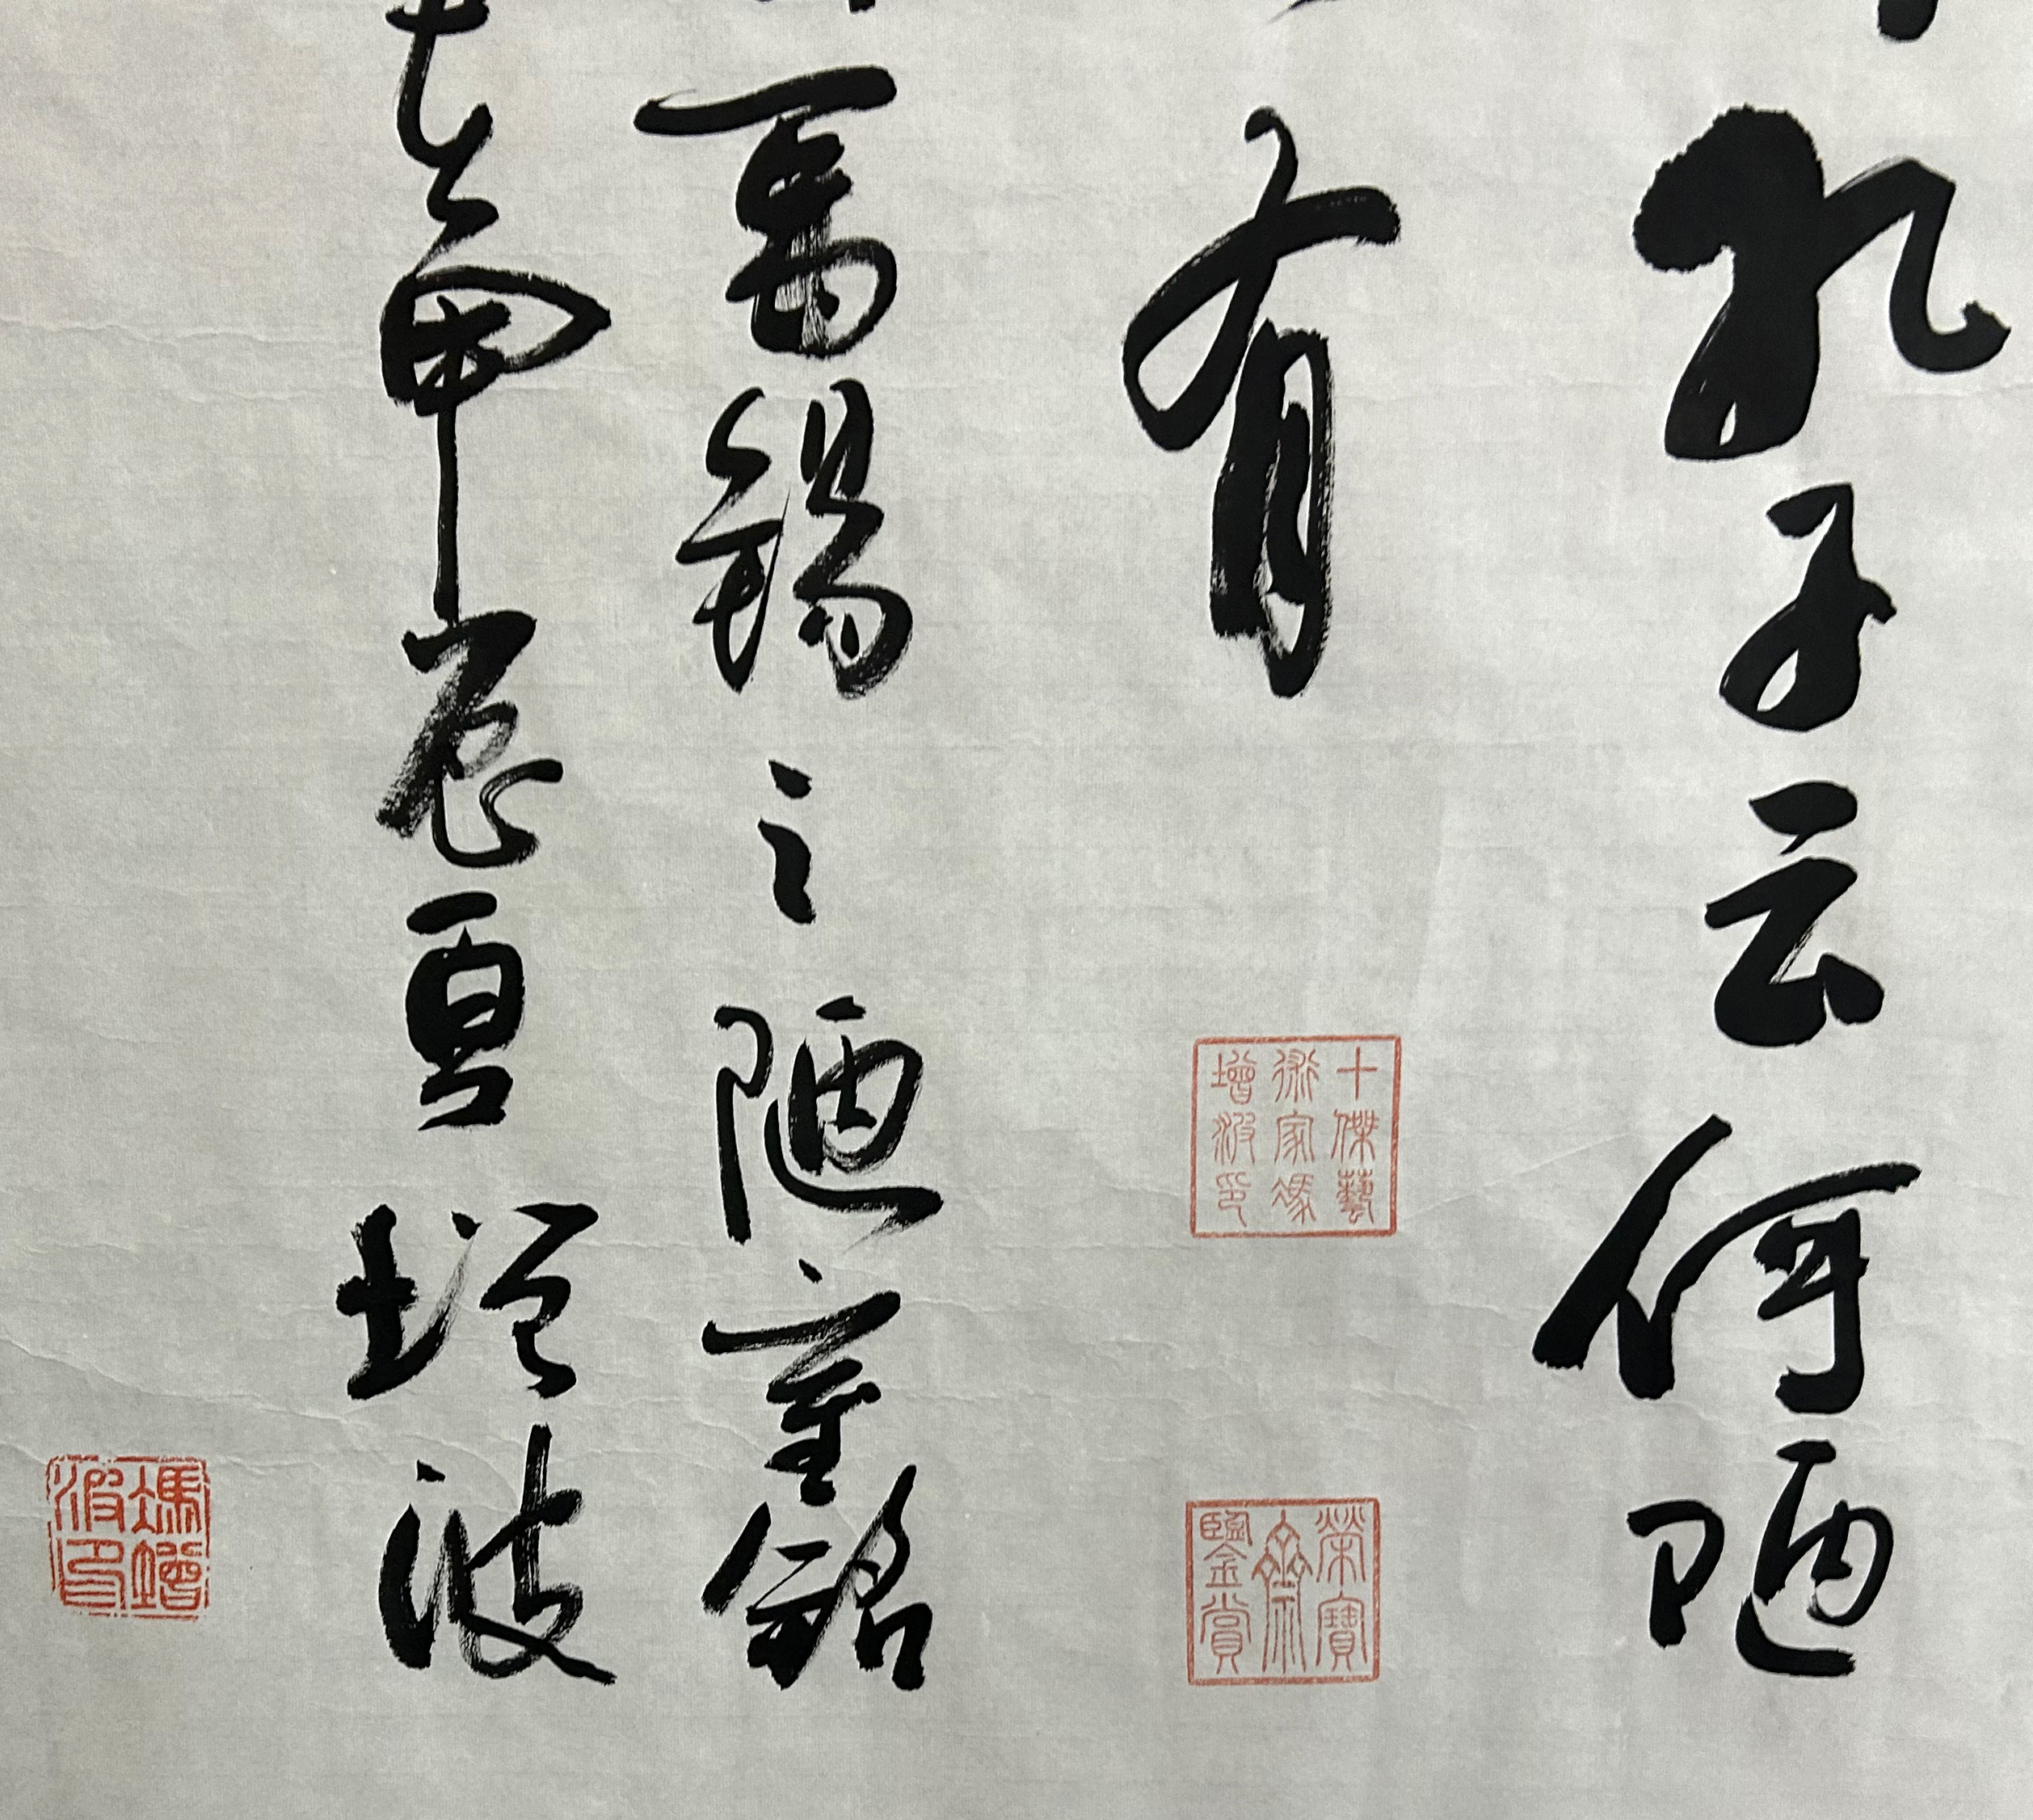 孔子云何陋
有
十傑藝
術家馮
增波印
榮寶
齋
鑒賞
禹錫之陋室銘
甲辰夏增波
馮增
波印